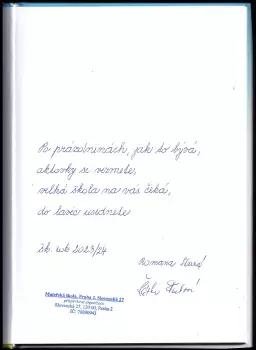 Po prázdninách, jak to bývá,
aktovky si vezmete,
velká škola na vás čeká,
do lavic usednete
šk. rok 2023/24
Romana
Mateřská škola, Praha 2, Slovenská 27
příspěvková organizace
Slovenská 27, 120 00, Praha 2